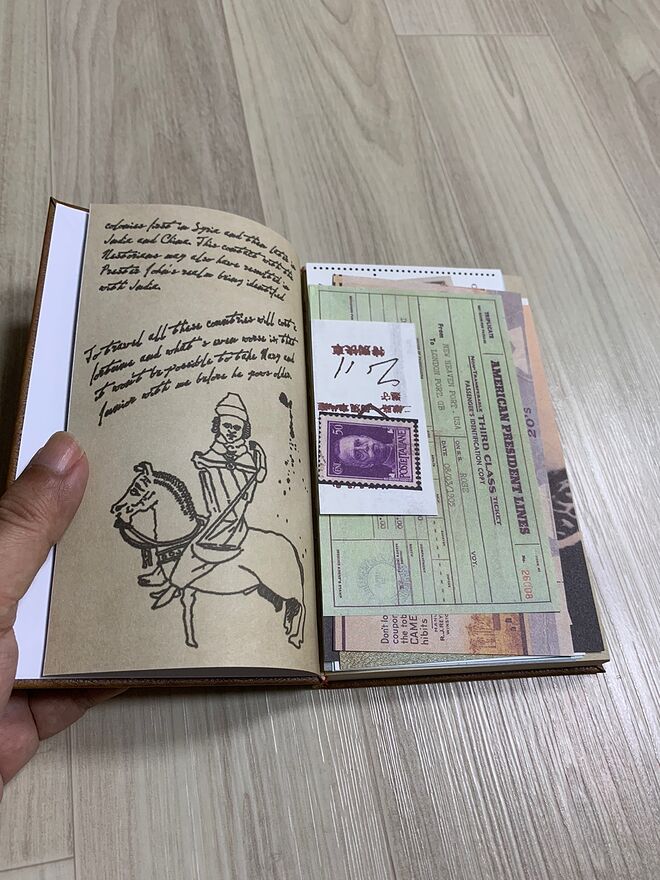 colonies first in Syria and then later in
India and China. This contact with the
Nestorians may also have resulted in
Prester John's realm being identified
with India.
To travel all these countries will cost a
fortune and what's even worse is that
it won't be possible to take Mary and
Junior with me before he goes older.
特別快車
211
POSTE ITALIANE
CENT. 50
AMERICAN PRESIDENT LINES
THIRD CLASS TICKET
NONTRANSFERABLE
PASSENGER'S IDENTIFICATION COPY
From NEW HEAVEN PORT, USA
To LONDON PORT, GB
ON S.S. ROSE
DATE
VOY.
No. 26098
20's
Don't lo
coupor
the tob
CAME
hibits
R. J. REY